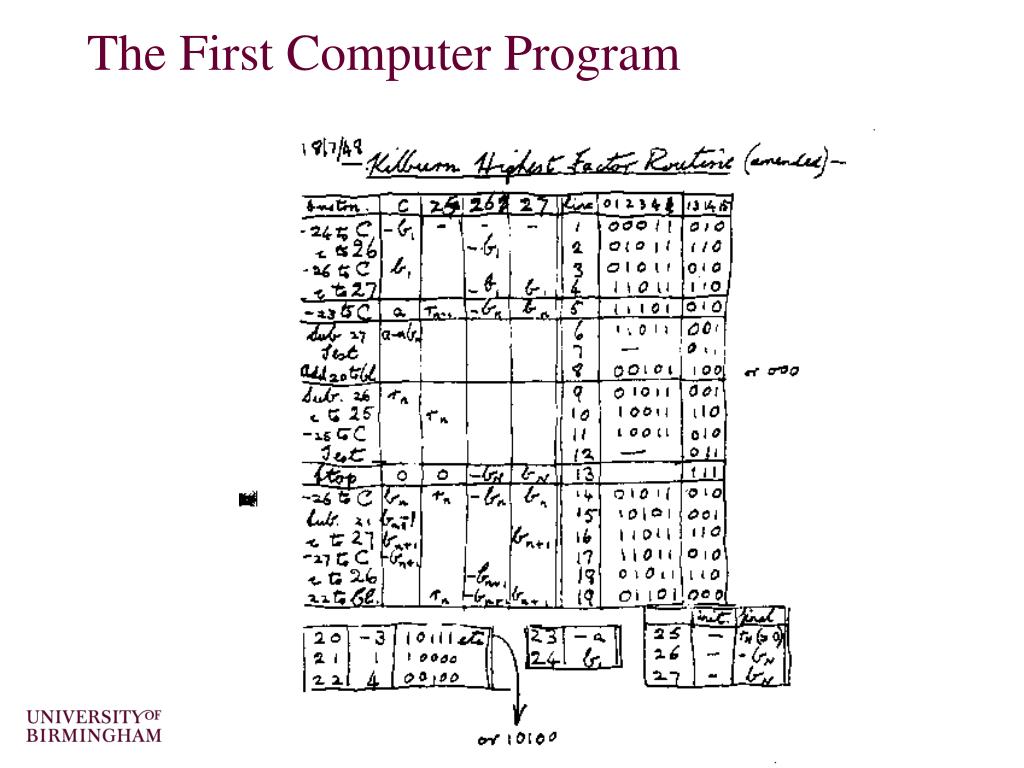 The First Computer Program
18/7/48
Kilburn Highest Factor Routine (amended)—
Instn. C 25 26 27 line 0 1 2 3 4 13 14 15
-24 to C -b1 - - - 1 00011 010
c to 26 -b1 2 01011 110
-26 to C b1 3 01011 010
c to 27 -b1 b1 4 11011 110
-23 to C a -bn bn 5 11101 010
Sub 27 a-bn 6 11011 001
Test 7 — 011
Add 20 to Cl. 8 00101 100 or 000
Sub. 26 rn 9 01011 001
c to 25 rn 10 10011 110
-25 to C 11 10011 010
Test 12 — 011
Stop 0 0 -bN bN 13 111
-26 to C bn rn -bn bn 14 01011 010
Sub. 21 15 10101 001
c to 27 bn+1 bn+1 16 11011 110
-27 to C -bn+1 17 11011 010
c to 26 -bn+1 18 01011 110
22 to Cl. rn -bn+1 bn+1 19 01101 000
20 -3 10111 etc
21 1 10000
22 4 00100
or 10100
23 -a
24 b1
init. final
25 - rN (=0)
26 - -bN
27 - bN
UNIVERSITY OF
BIRMINGHAM